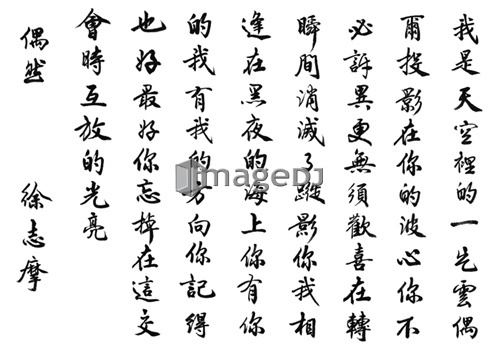 我是天空裡的一片雲偶
爾投影在你的波心你不
必訝異更無須歡喜在轉
瞬間消滅了蹤影你我相
逢在黑夜的海上你有你
的我有我的方向你記得
也好最好你忘掉在這交
會時互放的光亮
偶然 徐志摩
imageDJ